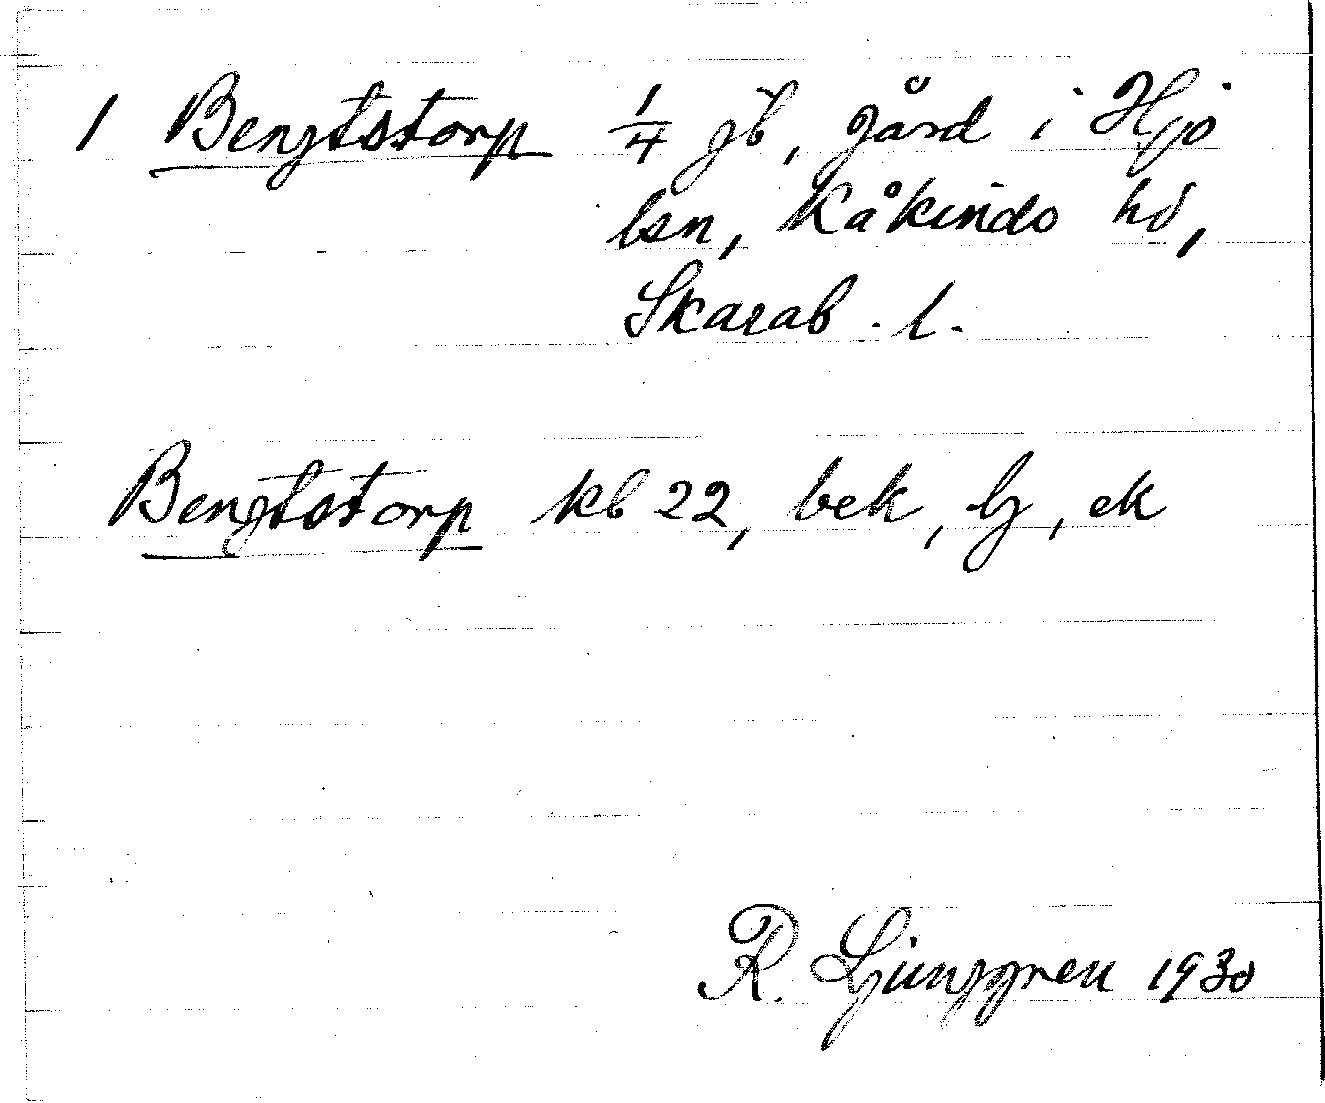 1 Bengtstorp 1/4 gb, gård i Hjo
lsn, Kåkinds hd,
Skarab. l.
Bengtstorp kb 22, bek, lj, ek
R. Ljunggren 1930